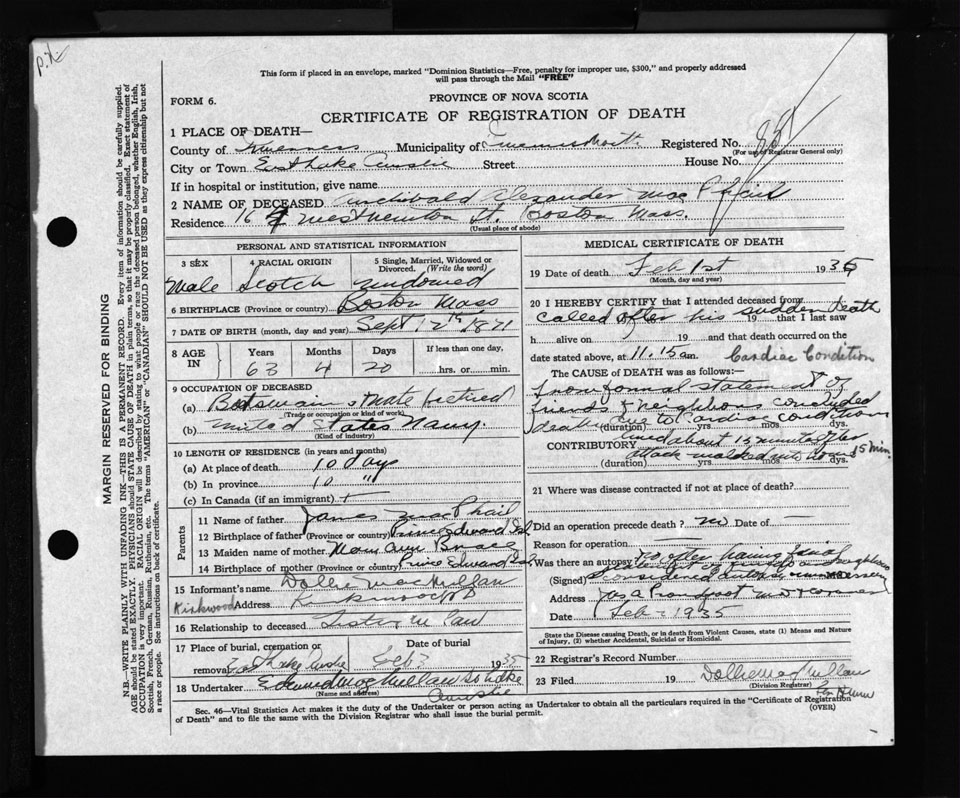 P.X.
This form if placed in an envelope, marked "Dominion Statistics—Free, penalty for improper use, $300," and properly addressed
will pass through the Mail "FREE"
FORM 6.
PROVINCE OF NOVA SCOTIA
CERTIFICATE OF REGISTRATION OF DEATH
1 PLACE OF DEATH—
County of Inverness Municipality of Registered No. 851
(For use of Registrar General only)
City or Town East Lake Ainslie Street House No.
If in hospital or institution, give name
2 NAME OF DECEASED Archibald Alexander MacPhail
Residence 16 West Newton St. Boston Mass.
(Usual place of abode)
PERSONAL AND STATISTICAL INFORMATION
3 SEX 4 RACIAL ORIGIN 5 Single, Married, Widowed or Divorced. (Write the word)
Male Scotch widowed
6 BIRTHPLACE (Province or country) Boston Mass
7 DATE OF BIRTH (month, day and year) Sept 12th 1871
8 AGE IN Years Months Days If less than one day,
63 4 20 hrs. or min.
9 OCCUPATION OF DECEASED
(a) Boatswain's Mate retired
(Trade or occupation or kind of work)
(b) United States Navy.
(Kind of industry)
10 LENGTH OF RESIDENCE (in years and months)
(a) At place of death 10 days
(b) In province 10 "
(c) In Canada (if an immigrant)
Parents
11 Name of father James MacPhail
12 Birthplace of father (Province or country) Prince Edward Isl
13 Maiden name of mother Ann Bruce
14 Birthplace of mother (Province or country) Prince Edward Isl
15 Informant Dollie MacMillan
Kirkwood Address
16 Relationship to deceased Sister in law
17 Place of burial, cremation or removal East Lake Ainslie Date of burial Feb 3 1935
18 Undertaker Edmund MacMillan Lake
(Name and address) Ainslie
MEDICAL CERTIFICATE OF DEATH
19 Date of death Feb 1st 1935
(Month, day and year)
20 I HEREBY CERTIFY that I attended deceased from
called after his sudden death 19 that I last saw
h alive on 19 and that death occurred on the
date stated above, at 11.15 am. Cardiac Condition
The CAUSE of DEATH was as follows:—
From formal statement of
friends & neighbors concluded
death due to Cardiac condition
(duration) yrs. mos. dys.
CONTRIBUTORY lived about 15 minutes after
attack walked into house 15 min.
(duration) yrs. mos. dys.
21 Where was disease contracted if not at place of death?
Did an operation precede death? no Date of —
Reason for operation —
Was there an autopsy? No after having
considered unnecessary
(Signed) M.D.
Address Jas A Proudfoot M.D. Coroner
Date Feb 2 1935
State the Disease causing Death, or in death from Violent Causes, state (1) Means and Nature
of Injury, (2) whether Accidental, Suicidal or Homicidal.
22 Registrar's Record Number
23 Filed 19 Dollie MacMillan
(Division Registrar)
Sec. 46—Vital Statistics Act makes it the duty of the Undertaker or person acting as Undertaker to obtain all the particulars required in the "Certificate of Registration
of Death" and to file the same with the Division Registrar who shall issue the burial permit.
(OVER)
MARGIN RESERVED FOR BINDING
N.B. WRITE PLAINLY WITH UNFADING INK—THIS IS A PERMANENT RECORD. Every item of information should be carefully supplied.
AGE should be stated EXACTLY. PHYSICIANS should STATE CAUSE OF DEATH in plain terms, so that it may be properly classified. Exact statement of
OCCUPATION is very important. RACIAL ORIGIN will be described by stating to what people or race the deceased person belonged, whether English, Irish,
Scottish, French, German, Russian, Ruthenian, etc. The terms "AMERICAN" or "CANADIAN" SHOULD NOT BE USED as they express citizenship but not
a race or people. See instructions on back of certificate.